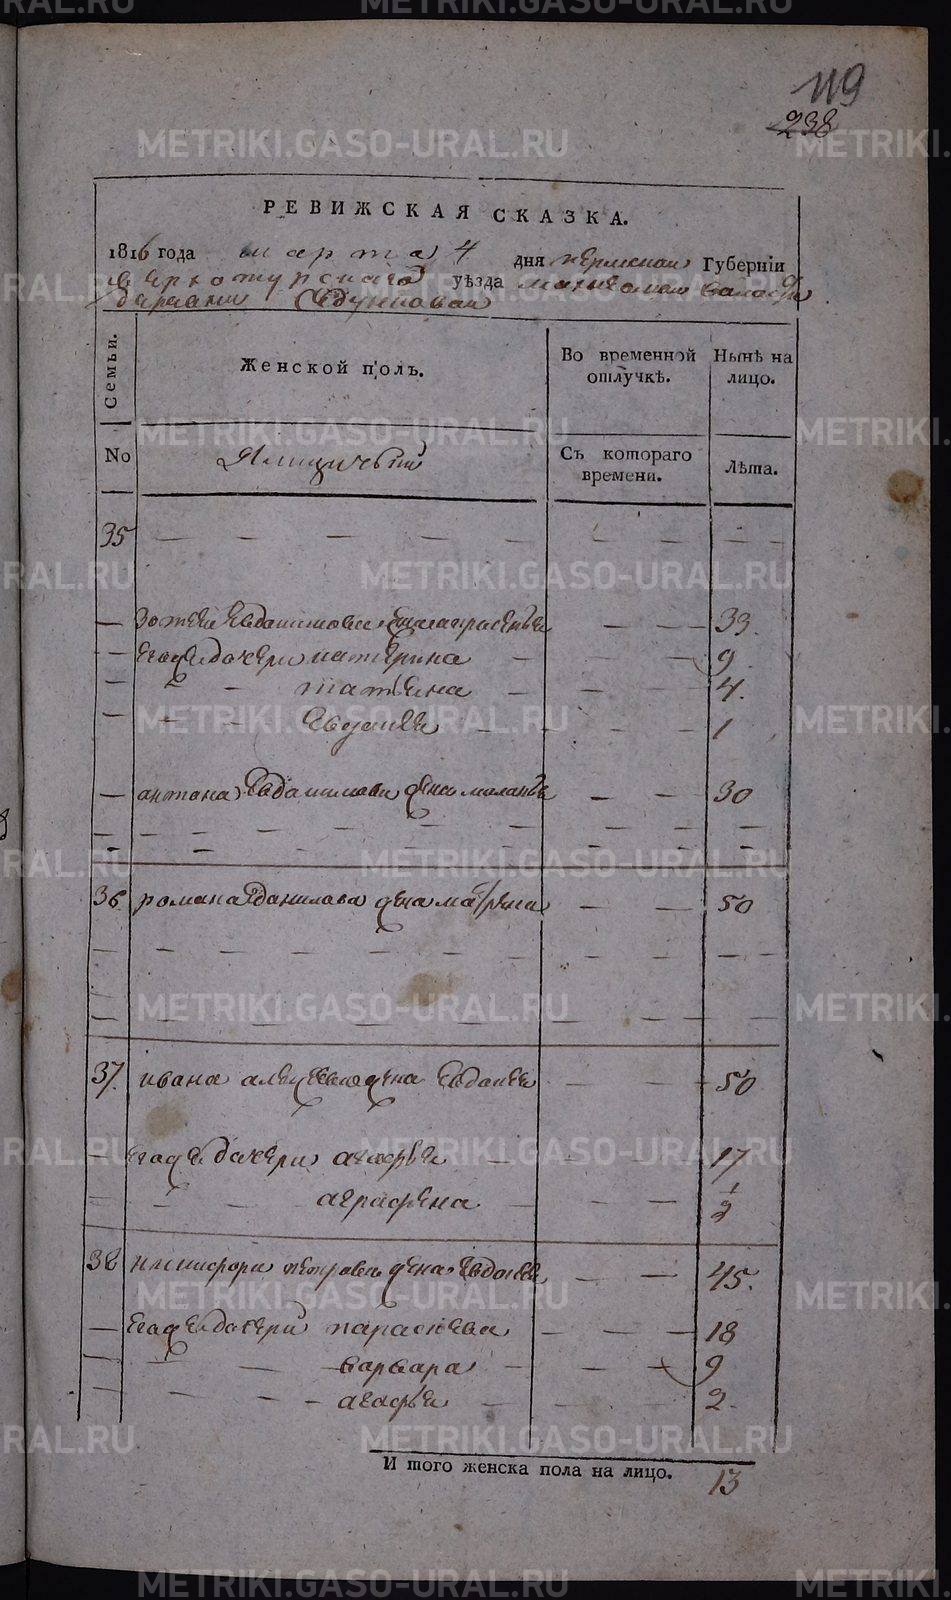 119
238
РЕВИЖСКАЯ СКАЗКА.
1816 года марта 4 дня пермской Губерніи
верхотурскаго уѣзда махневской волости
деревни
Семьи.
Женской полъ.
Во временной отлучкѣ.
Нынѣ на лицо.
No
Ямщичьи
Съ котораго времени.
Лѣта.
35
33.
егожъ дочери катерина 9
татьяна 4.
1
антона Евдокимова жена маланья 30
36. романа данилова жена матрена 50
37. ивана алексеева жена Евдокея 50
егожъ дочери агафья 17
аграфена 1/2
38 никифора петрова жена Евдокея 45.
егожъ дочери параскева 18
варвара 9
агафья 2.
И того женска пола на лицо. 13
METRIKI.GASO-URAL.RU